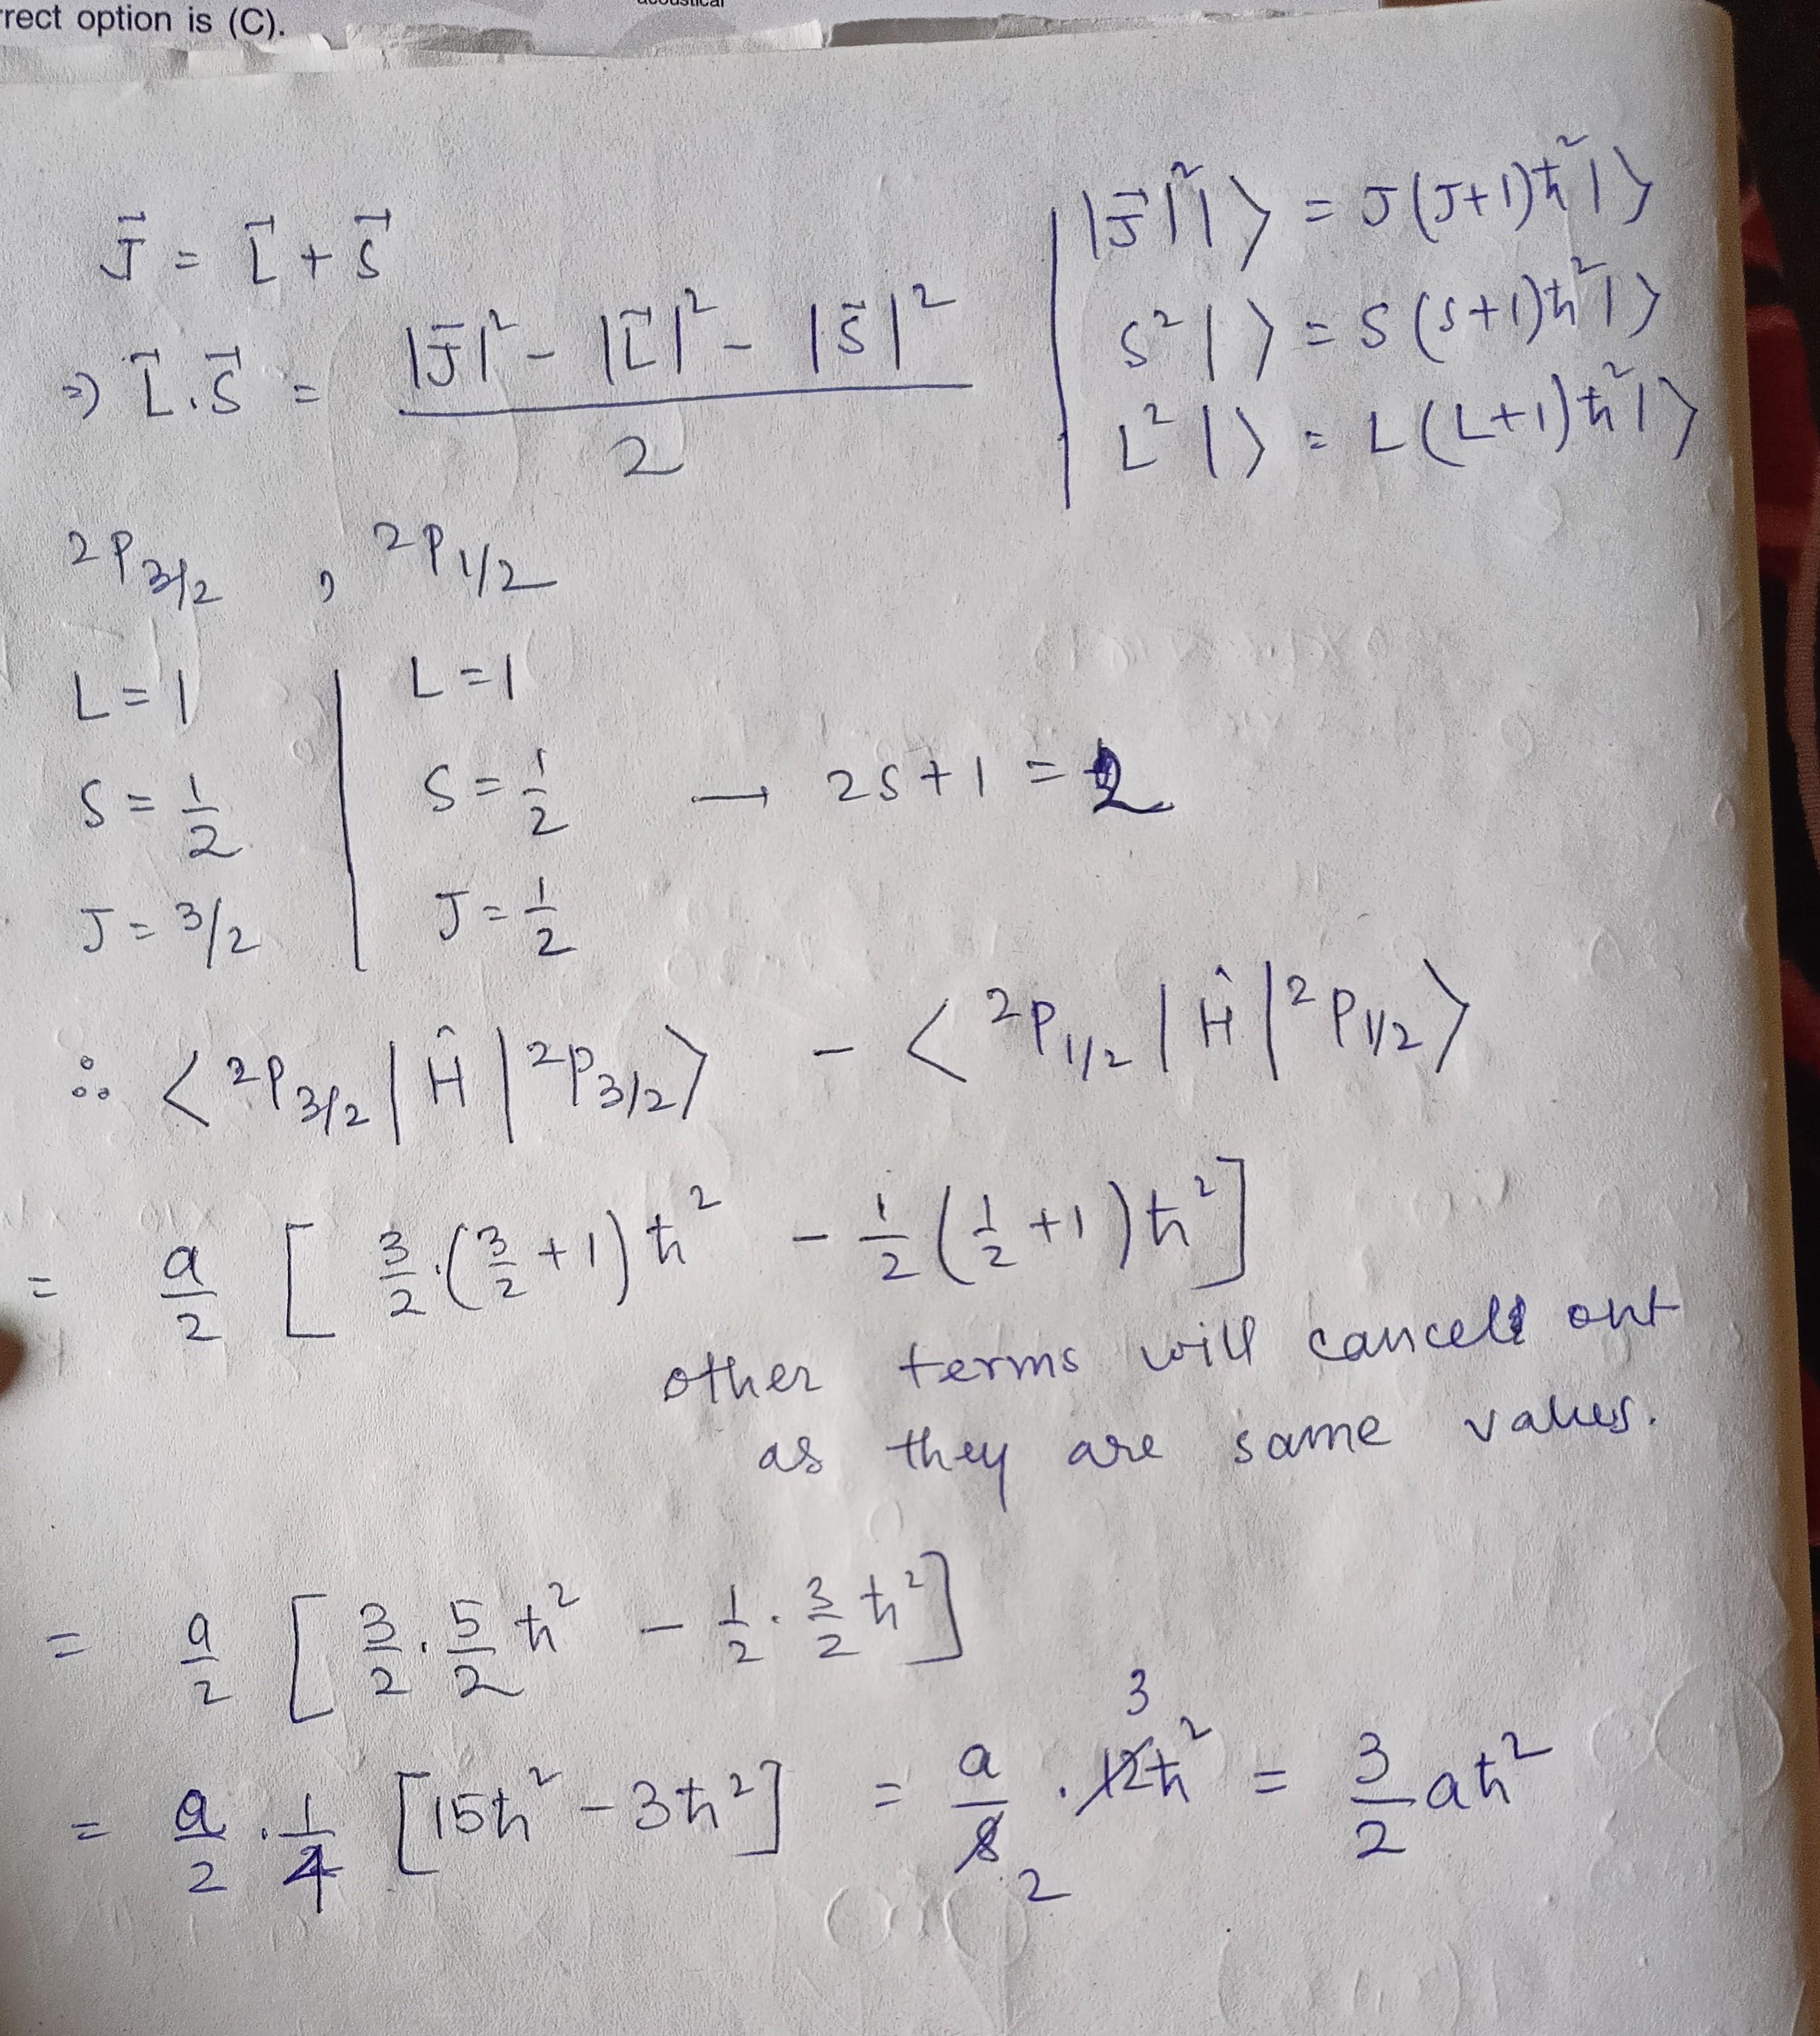 rrect option is (C).
acoustical
J⃗ = L⃗ + S⃗
⇒ L⃗.S⃗ = (|J⃗|² - |L⃗|² - |S⃗|²) / 2
|J⃗|²|⟩ = J(J+1)ħ²|⟩
S²|⟩ = S(S+1)ħ²|⟩
L²|⟩ = L(L+1)ħ²|⟩
²P₃/₂ , ²P₁/₂
L = 1 | L = 1
S = 1/2 | S = 1/2 → 2S+1 = 2
J = 3/2 | J = 1/2
∴ ⟨²P₃/₂|Ĥ|²P₃/₂⟩ - ⟨²P₁/₂|Ĥ|²P₁/₂⟩
= a/2 [3/2.(3/2+1)ħ² - 1/2(1/2+1)ħ²]
other terms will cancell out
as they are same values.
= a/2 [3/2.5/2 ħ² - 1/2.3/2 ħ²]
= a/2.1/4 [15ħ² - 3ħ²] = a/8 2 . 12 3 ħ² = 3/2 aħ²